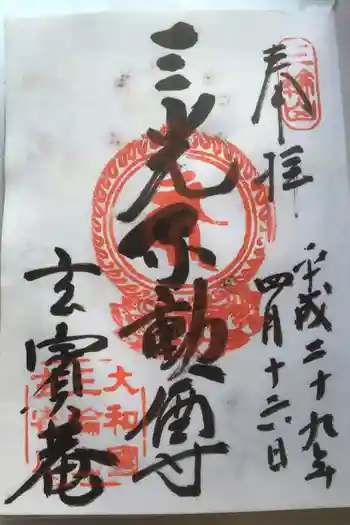 奉拝
平成二十九年
四月十六日
三光不動尊
玄賓庵
大和国
三輪